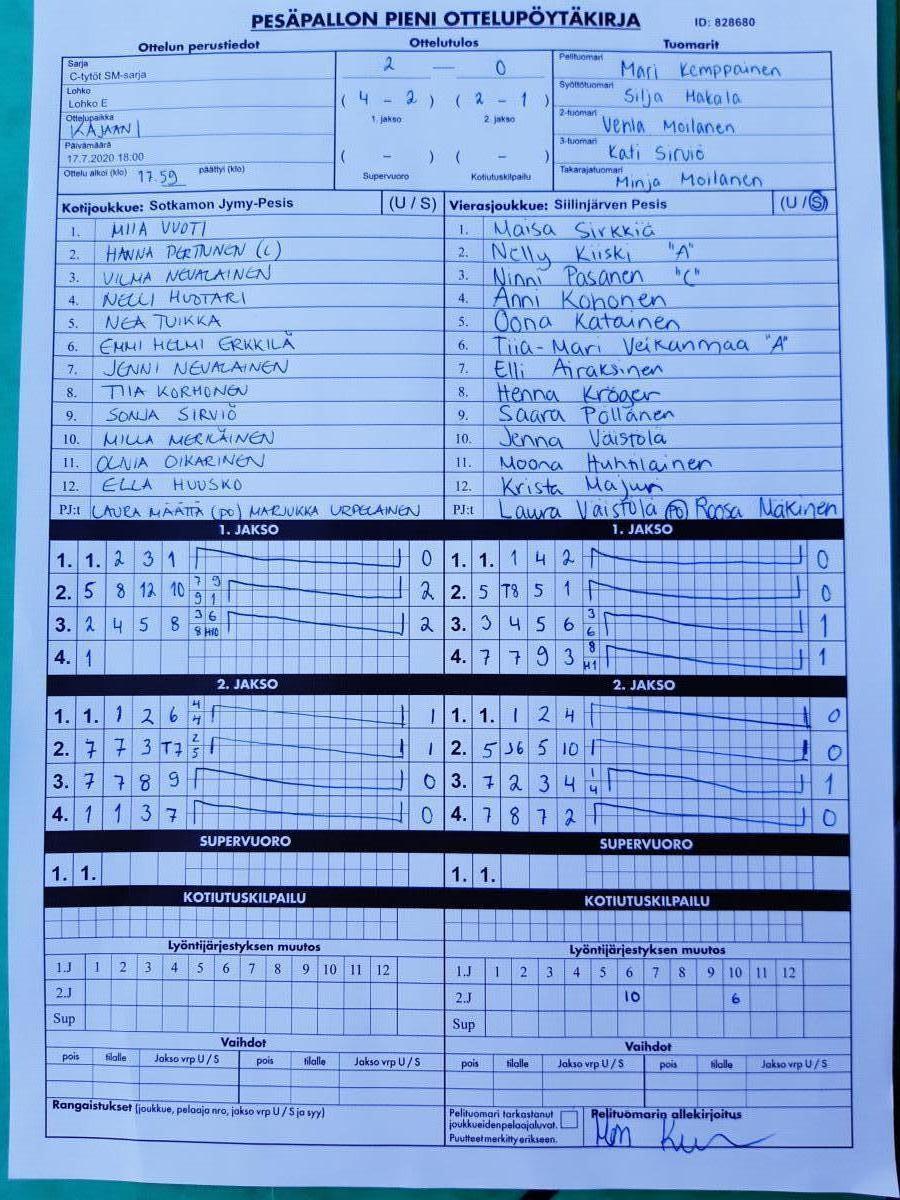 PESÄPALLON PIENI OTTELUPÖYTÄKIRJA ID: 828680
Ottelun perustiedot Ottelutulos Tuomarit
Sarja
C-tytöt SM-sarja
Lohko
Lohko E
Ottelupaikka
KAJAANI
Päivämäärä
17.7.2020 18:00
Ottelu alkoi (klo) 17.59 päättyi (klo)
2 — 0
( 4 - 2 ) ( 2 - 1 )
1. jakso 2. jakso
( - ) ( - )
Supervuoro Kotiutuskilpailu
Pelituomari Mari Kemppainen
Syöttötuomari Silja Makala
2-tuomari Venla Moilanen
3-tuomari Kati Sirviö
Takarajatuomari Minja Moilanen
Kotijoukkue: Sotkamon Jymy-Pesis (U / S)
1. MIIA VUOTI
2. HANNA PERTTUNEN (C)
3. VILMA NEVALAINEN
4. NELLI HUOTARI
5. NEA TUIKKA
6. EMMI HELMI ERKKILÄ
7. JENNI NEVALAINEN
8. TIIA KORHONEN
9. SONJA SIRVIÖ
10. MILLA MERILÄINEN
11. OLIVIA OIKARINEN
12. ELLA HUUSKO
PJ:t LAURA MÄÄTTÄ (PO) MARJUKKA URPELAINEN
Vierasjoukkue: Siilinjärven Pesis (U / S)
1. Maisa Sirkkiä
2. Nelly Kiiski "A"
3. Ninni Pasanen "C"
4. Anni Kohonen
5. Oona Katainen
6. Tiia-Mari Veikanmaa "A"
7. Elli Airaksinen
8. Henna Kröger
9. Saara Pöllänen
10. Jenna Väistölä
11. Moona Huhtilainen
12. Krista Majuri
PJ:t Laura Väistölä PO Roosa Mäkinen
1. JAKSO
1. 1. 2 3 1 0
2. 5 8 12 10 7 9 9 1 2
3. 2 4 5 8 3 6 8 H10 2
4. 1
1. JAKSO
1. 1. 1 4 2 0
2. 5 T8 5 1 0
3. 3 4 5 6 3 6 1
4. 7 7 9 3 8 H1 1
2. JAKSO
1. 1. 1 2 6 4 4 1
2. 7 7 3 T7 2 5 1
3. 7 7 8 9 0
4. 1 1 3 7 0
2. JAKSO
1. 1. 1 2 4 0
2. 5 J6 5 10 0
3. 7 2 3 4 1 4 1
4. 7 8 7 2 0
SUPERVUORO
1. 1.
SUPERVUORO
1. 1.
KOTIUTUSKILPAILU
KOTIUTUSKILPAILU
Lyöntijärjestyksen muutos
1.J 1 2 3 4 5 6 7 8 9 10 11 12
2.J
Sup
Lyöntijärjestyksen muutos
1.J 1 2 3 4 5 6 7 8 9 10 11 12
2.J 10 6
Sup
Vaihdot
pois tilalle Jakso vrp U / S pois tilalle Jakso vrp U / S
Vaihdot
pois tilalle Jakso vrp U / S pois tilalle Jakso vrp U / S
Rangaistukset (joukkue, pelaaja nro, jakso vrp U / S ja syy)
Pelituomari tarkastanut
joukkueidenpelaajaluvat.
Puutteet merkitty erikseen.
Pelituomarin allekirjoitus